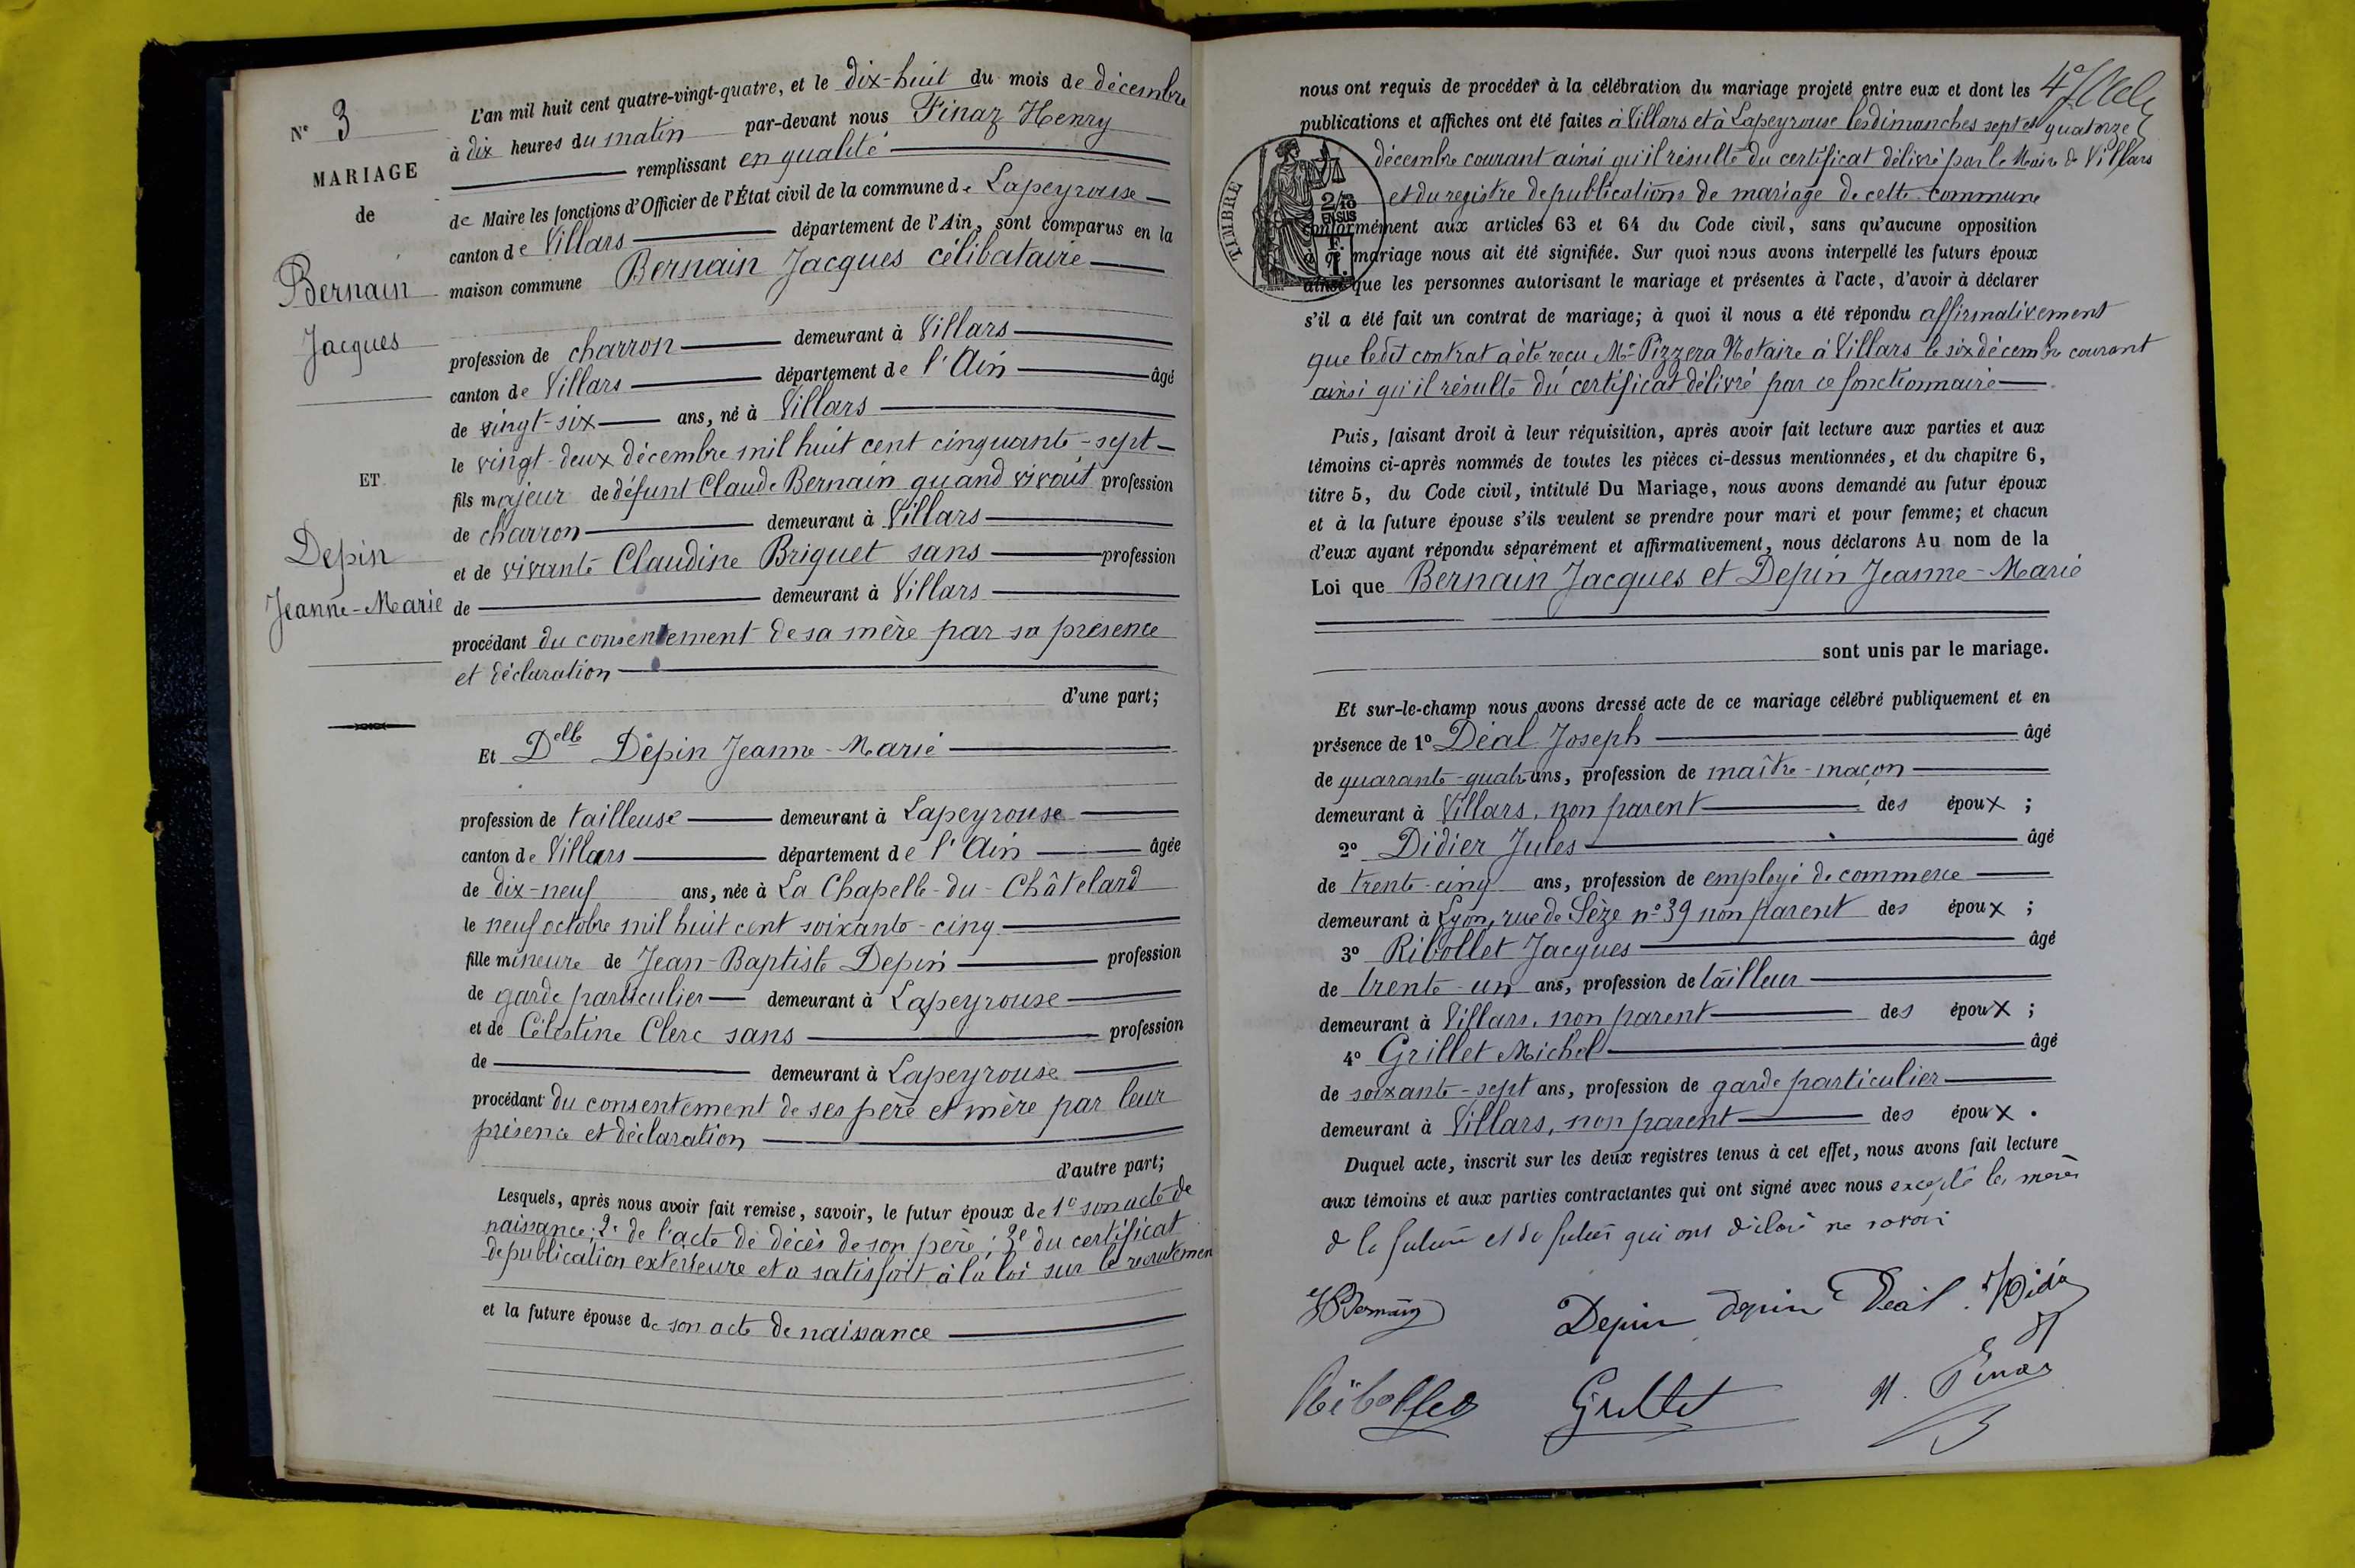 N° 3
MARIAGE
de
Bernain
Jacques
ET
Depin
Jeanne-Marie
L'an mil huit cent quatre-vingt-quatre, et le dix-huit du mois de décembre
à dix heures du matin par-devant nous Finaz Henry
remplissant en qualité
de Maire les fonctions d'Officier de l'État civil de la commune de Lapeyrouse
canton de Villars département de l'Ain, sont comparus en la
maison commune Bernain Jacques célibataire
profession de charron demeurant à Villars
canton de Villars département de l'Ain âgé
de vingt-six ans, né à Villars
le vingt-deux décembre mil huit cent cinquante-sept
fils majeur de défunt Claude Bernain quand vivait profession
de charron demeurant à Villars
et de vivante Claudine Briquet sans profession
de demeurant à Villars
procédant du consentement de sa mère par sa présence
et déclaration
d'une part;
Et Delle Depin Jeanne-Marie
profession de tailleuse demeurant à Lapeyrouse
canton de Villars département de l'Ain âgée
de dix-neuf ans, née à La Chapelle-du-Châtelard
le neuf octobre mil huit cent soixante-cinq
fille mineure de Jean-Baptiste Depin profession
de garde particulier demeurant à Lapeyrouse
et de Célestine Clerc sans profession
de demeurant à Lapeyrouse
procédant du consentement de ses père et mère par leur
présence et déclaration
d'autre part;
Lesquels, après nous avoir fait remise, savoir, le futur époux de 1° son acte de
naissance; 2° de l'acte de décès de son père; 3° du certificat
de publication extérieure et a satisfait à la loi sur le recrutemen
et la future épouse de son acte de naissance
nous ont requis de procéder à la célébration du mariage projeté entre eux et dont les
publications et affiches ont été faites à Villars et à Lapeyrouse les dimanches sept et quatorze
décembre courant ainsi qu'il résulte du certificat délivré par le Maire de Villars
et du registre de publications de mariage de cette commune
TIMBRE
2/10
EN SUS
conformément aux articles 63 et 64 du Code civil, sans qu'aucune opposition
à ce mariage nous ait été signifiée. Sur quoi nous avons interpellé les futurs époux
ainsi que les personnes autorisant le mariage et présentes à l'acte, d'avoir à déclarer
s'il a été fait un contrat de mariage; à quoi il nous a été répondu affirmativement
que ledit contrat a été reçu Me Pizzera Notaire à Villars le six décembre courant
ainsi qu'il résulte du certificat délivré par ce fonctionnaire
Puis, faisant droit à leur réquisition, après avoir fait lecture aux parties et aux
témoins ci-après nommés de toutes les pièces ci-dessus mentionnées, et du chapitre 6,
titre 5, du Code civil, intitulé Du Mariage, nous avons demandé au futur époux
et à la future épouse s'ils veulent se prendre pour mari et pour femme; et chacun
d'eux ayant répondu séparément et affirmativement, nous déclarons Au nom de la
Loi que Bernain Jacques et Depin Jeanne-Marie
sont unis par le mariage.
Et sur-le-champ nous avons dressé acte de ce mariage célébré publiquement et en
présence de 1° Déal Joseph âgé
de quarante-quatre ans, profession de maître-maçon
demeurant à Villars, non parent des époux;
2° Didier Jules âgé
de trente-cinq ans, profession de employé de commerce
demeurant à Lyon, rue de Sèze n° 39 non parent des époux;
3° Ribollet Jacques âgé
de trente-un ans, profession de tailleur
demeurant à Villars, non parent des époux;
4° Grillet Michel âgé
de soixante-sept ans, profession de garde particulier
demeurant à Villars, non parent des époux.
Duquel acte, inscrit sur les deux registres tenus à cet effet, nous avons fait lecture
aux témoins et aux parties contractantes qui ont signé avec nous excepté les mères
de la future et du futur qui ont déclaré ne savoir
Bernain Depin Depin Déal Didier
Ribollet Grillet H. Finaz